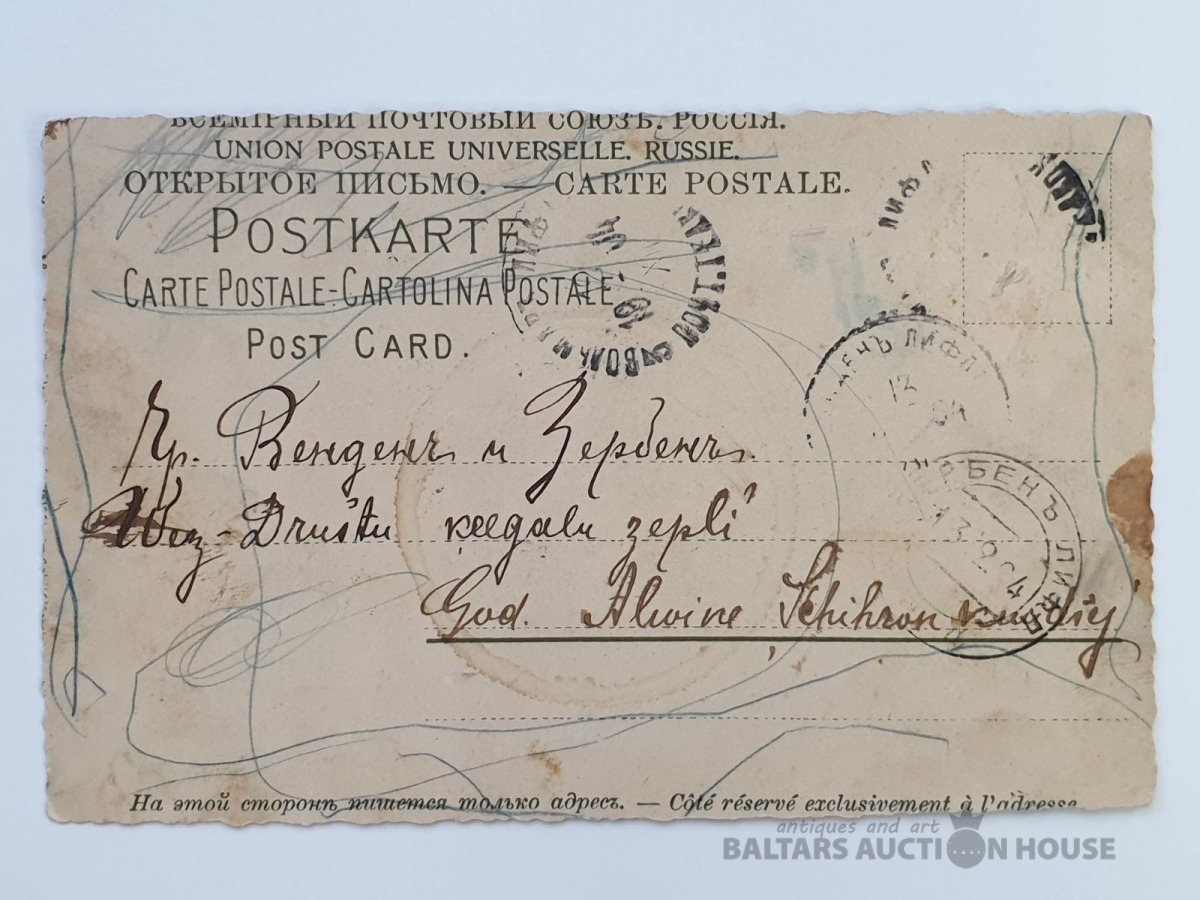 ВСЕМІРНЫЙ ПОЧТОВЫЙ СОЮЗЪ. РОССІЯ.
UNION POSTALE UNIVERSELLE. RUSSIE.
ОТКРЫТОЕ ПИСЬМО. — CARTE POSTALE.
POSTKARTE
CARTE POSTALE-CARTOLINA POSTALE
POST CARD.
Чр. Венденъ и Зербенъ.
Wez-Drustu keegalu zepli
God. Alwine kundsey
На этой сторонѣ пишется только адресъ. — Côté réservé exclusivement à l'adresse
antiques and art
BALTARS AUCTION HOUSE